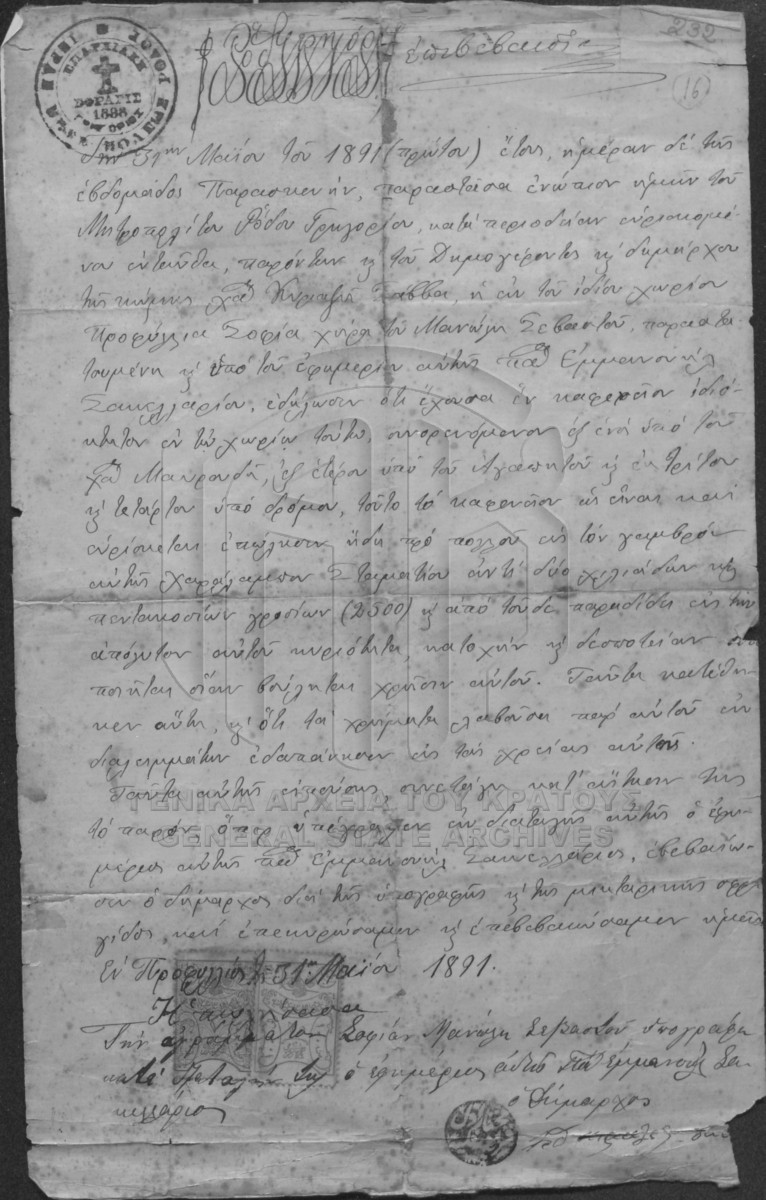 232
(16)
ΕΠΑΡΧΙΑΚΗ
ΣΦΡΑΓΙΣ
1888
ἐπιβεβαιοῖ
Τὴν 31ην Μαΐου τοῦ 1891 (πρώτου) ἔτους, ἡμέραν δὲ τῆς
ἑβδομάδος Παρασκευήν, παραστᾶσα ἐνώπιον ἡμῶν τοῦ
Μητροπολίτου Ῥόδου Γρηγορίου, κατὰ περιοδείαν εὑρισκομέ-
νου ἐνταῦθα, παρόντων κ τοῦ Δημογέροντος κ δημάρχου
τῆς κώμης Σάββα, ἡ ἐκ τοῦ ἰδίου χωρίου
Προφύλλια Σοφία χήρα τοῦ Μανώλη Σεβαστοῦ, παραστα-
τουμένη κ ὑπὸ τοῦ ἐφημερίου αὐτῆς παπᾶ Ἐμμανουὴλ
Σακελλαρίου, ἐδήλωσεν ὅτι ἔχουσα ἓν καφενεῖον ἰδιό-
κτητον ἐν τῷ χωρίῳ τούτῳ, συνορευόμενον ἐξ ἑνὸς ὑπὸ τοῦ
Μαυρουδῆ, ἐξ ἑτέρου ὑπὸ τοῦ Ἀγαπητοῦ κ ἐκ τρίτου
κ τετάρτου ὑπὸ δρόμου, τοῦτο τὸ καφενεῖον ὡς εἶναι καὶ
εὑρίσκεται ἐπώλησεν ἤδη πρὸ πολλοῦ εἰς τὸν γαμβρὸν
αὐτῆς Χαράλαμπον Σταματίου ἀντὶ δύο χιλιάδων κ
πεντακοσίων γροσίων (2500) κ ἀπὸ τοῦδε παραδίδει εἰς τὴν
ἀπόλυτον αὐτοῦ κυριότητα, κατοχὴν κ δεσποτείαν ἵνα
ποιῆται οἵαν βούληται χρῆσιν αὐτοῦ. Ταῦτα κατέθη-
κεν αὕτη, κ ὅτι τὰ χρήματα λαβοῦσα παρ' αὐτοῦ ἐκ
διαλειμμάτων ἐδαπάνησεν εἰς τὰς χρείας αὐτῆς.
Ταῦτα αὐτῆς εἰπούσης συνετάγη κατ' αἴτησίν της
τὸ παρόν, ὅπερ ὑπέγραψεν ἐκ διαταγῆς αὐτῆς ὁ ἐφη-
μέριος αὐτῆς παπᾶ Ἐμμανουὴλ Σακελλάριος, ἐβεβαίω-
σεν ὁ δήμαρχος διὰ τῆς ὑπογραφῆς κ τῆς μουχταρικῆς σφρα-
γίδος, καὶ ἐπεκυρώσαμεν κ ἐπεβεβαιώσαμεν ἡμεῖς
Ἐν Προφυλλίοις τῇ 31ῃ Μαΐου 1891.
Ἡ πωλήσασα
Τὴν ἀγράμματον Σοφίαν Μανώλη Σεβαστοῦ ὑπογράφω
κατὰ διαταγήν της ὁ ἐφημέριος αὐτῆς Παπᾶ Ἐμμανουὴλ Σα-
κελλάριος
ὁ Δήμαρχος
ΓΕΝΙΚΑ ΑΡΧΕΙΑ ΤΟΥ ΚΡΑΤΟΥΣ
GENERAL STATE ARCHIVES